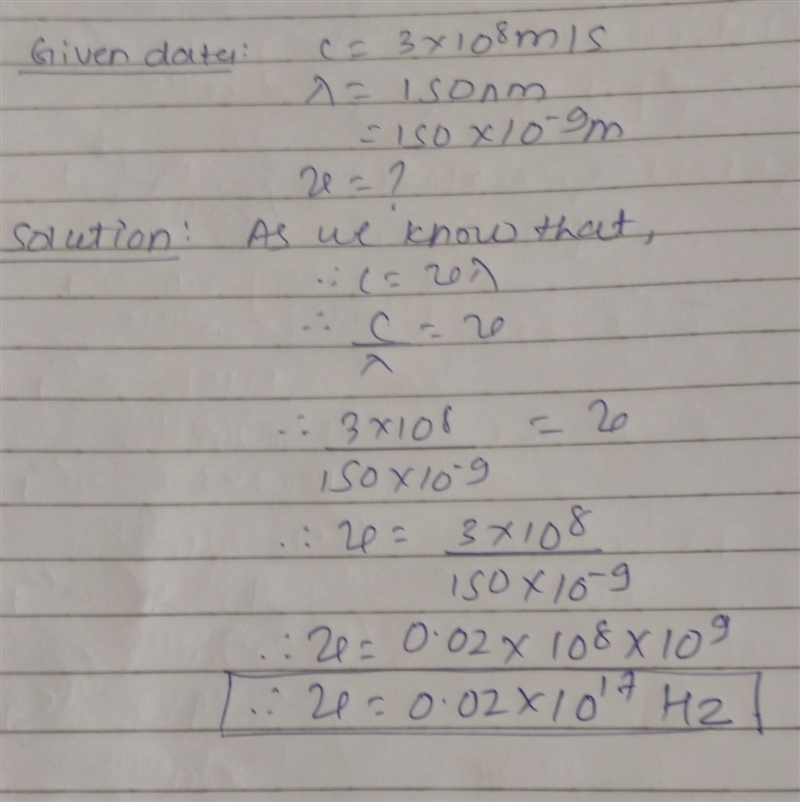 Given data: c = 3×10⁸m/s
λ = 150nm
= 150 × 10⁻⁹m
ν = ?
Solution: As we know that,
∴ c = νλ
∴ c/λ = ν
∴ 3×10⁸/150×10⁻⁹ = ν
∴ ν = 3×10⁸/150×10⁻⁹
∴ ν = 0.02 × 10⁸ × 10⁹
∴ ν = 0.02×10¹⁷ Hz